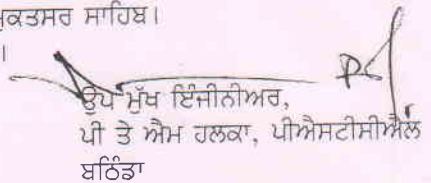 ਮੁਕਤਸਰ ਸਾਹਿਬ।
।
ਉਪ ਮੁੱਖ ਇੰਜੀਨੀਅਰ,
ਪੀ ਤੇ ਐਮ ਹਲਕਾ, ਪੀਐਸਟੀਸੀਐਲ
ਬਠਿੰਡਾ